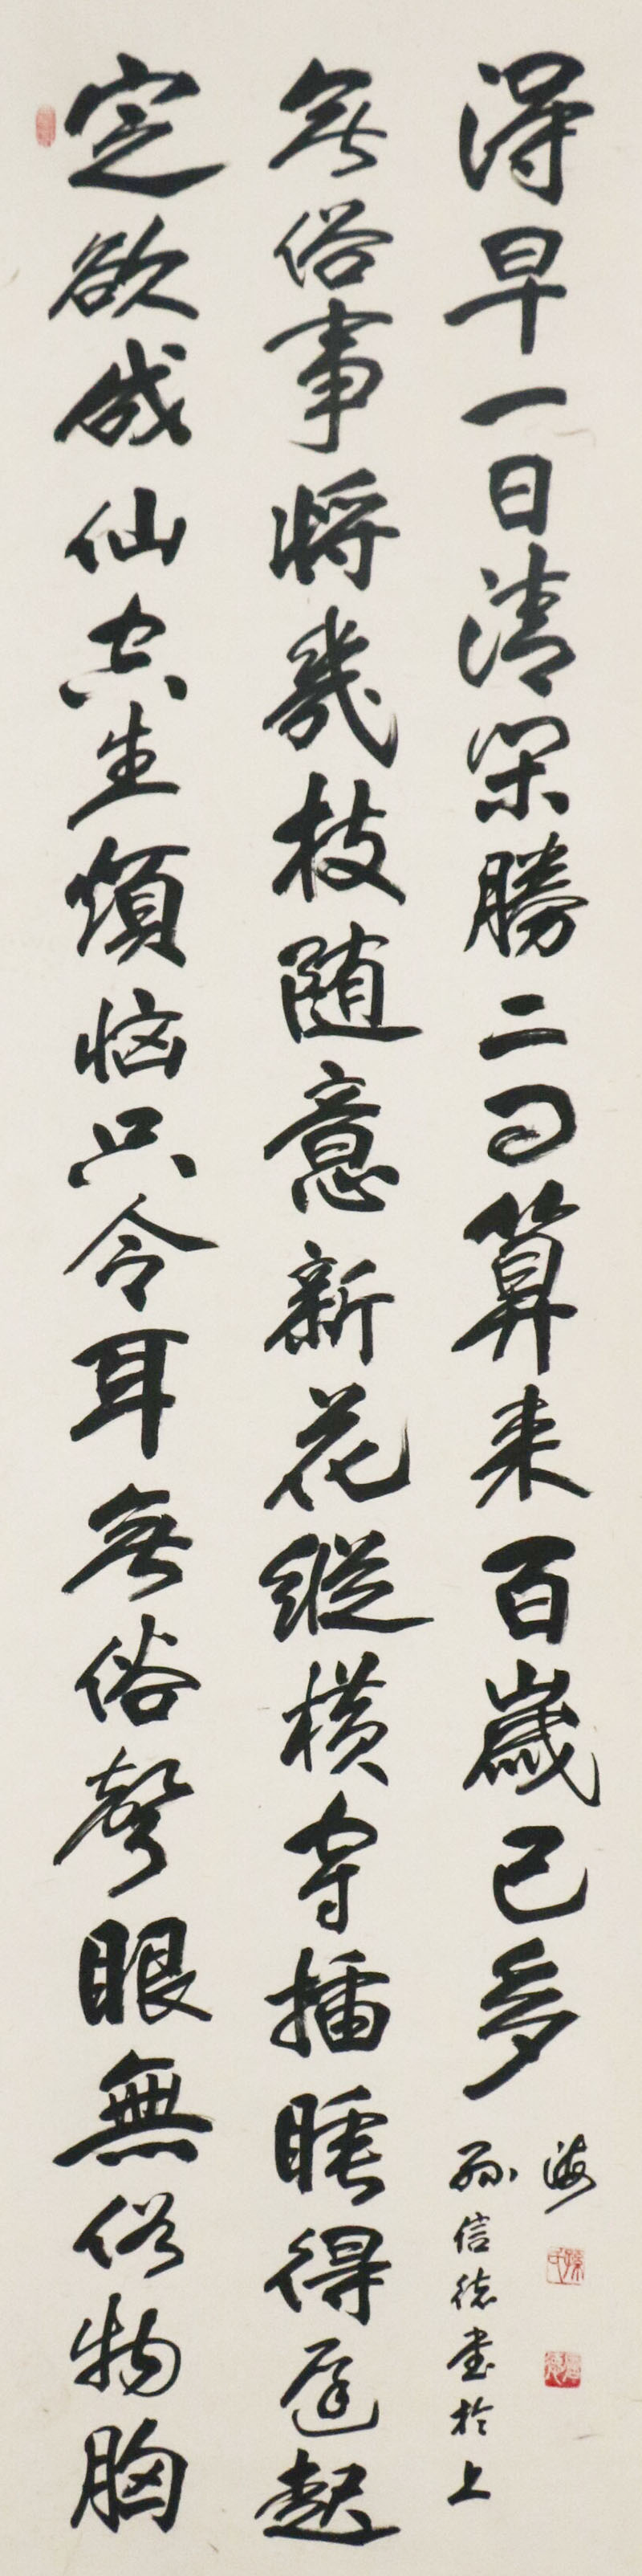 定欲成仙空生煩恼只令耳無俗聲眼無俗物胸
無俗事将幾枝随意新花縱横穿插睡得遲起
得早一日清閑勝二日算来百歲已多
孫信德書於上
海